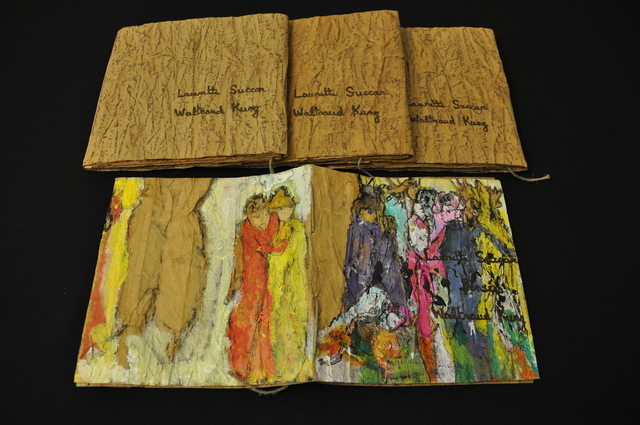 Laurette Succar
Waltraud Kung
Laurette Succar
Waltraud Kung
Laurette Succar
Waltraud Kung
Laurette Succar
Waltraud Kung